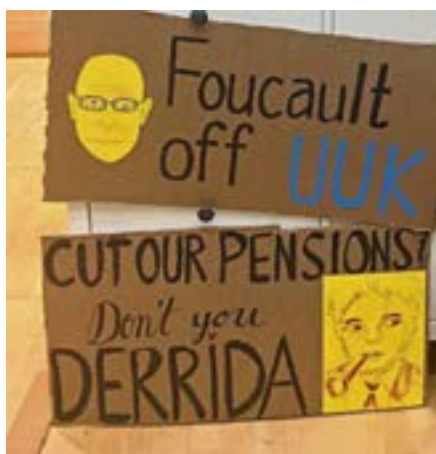 Foucault
off UUK
CUT OUR PENSIONS?
Don't you
DERRIDA